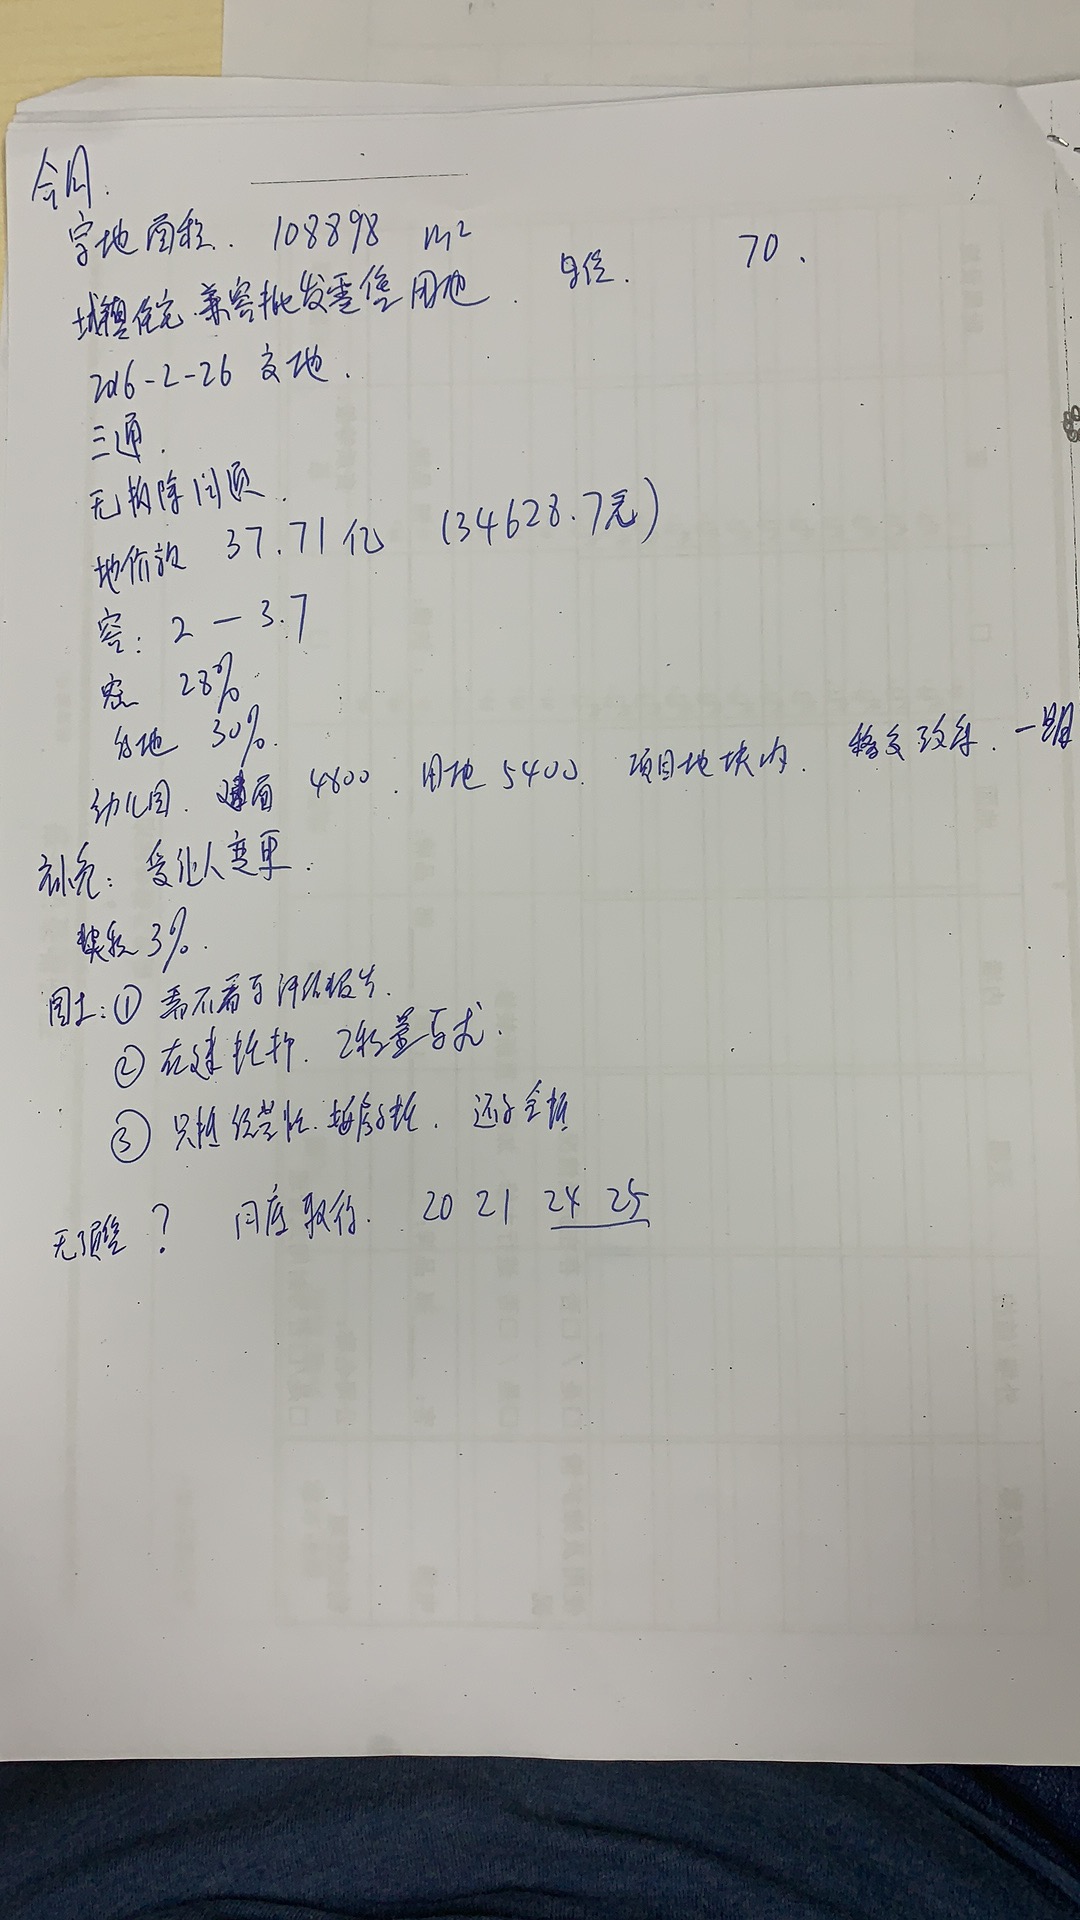 合同.
宗地面积. 108898 m²
城镇住宅.兼容批发零售用地. 住. 70.
2016-2-26 交地.
三通.
无拆除问题.
地价款 37.71亿 (34628.7元)
容: 2 — 3.7
密 28%
绿地 30%.
幼儿园. 建面 4800. 用地 5400. 项目地块内. 移交政府. 一期
补充: 受让人变更.
契税 3%.
国土: ① 需不需要评估报告.
② 在建抵押. 工程量要求.
③ 只抵经营性. 按房抵. 还是全抵
无预售? 何度取得. 20 21 24 25